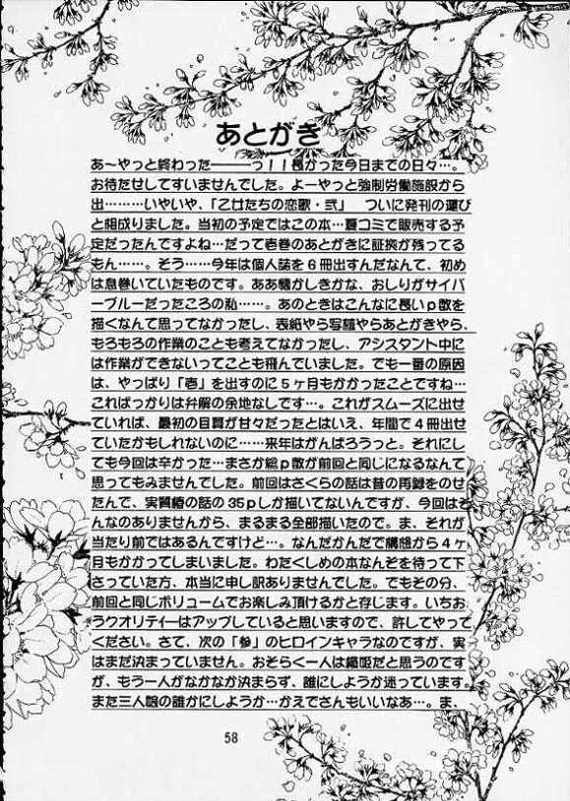 あとがき
あ〜やっと終わった―――っ！！長かった今日までの日々…。
お待たせしてすいませんでした。よーやっと強制労働施設から
出………いやいや、「乙女たちの恋歌・弐」　ついに発刊の運び
と相成りました。当初の予定ではこの本…夏コミで販売する予
定だったんですよね…だって壱巻のあとがきに証拠が残ってる
もん……。そう……今年は個人誌を６冊出すんだなんて、初め
は息巻いていたものです。ああ懐かしきかな、おしりがサイバ
ーブルーだったころの私……。あのときはこんなに長いｐ数を
描くなんて思ってなかったし、表紙やら写植やらあとがきやら、
もろもろの作業のことも考えてなかったし、アシスタント中に
は作業ができないってことも飛んでいました。でも一番の原因
は、やっぱり「壱」を出すのに５ヶ月もかかったことですね…
こればっかりは弁解の余地なしです…。これがスムーズに出せ
ていれば、最初の目算が甘々だったとはいえ、年間で４冊出せ
ていたかもしれないのに……来年はがんばろうっと。それにし
ても今回は辛かった…まさか総ｐ数が前回と同じになるなんて
思ってもみませんでした。前回はさくらの話は昔の再録をのせ
たんで、実質椿の話の35ｐしか描いてないんですが、今回はそ
んなのありませんから、まるまる全部描いたので。ま、それが
当たり前ではあるんですけど…。なんだかんだで構想から４ヶ
月もかかってしまいました。わたくしめの本なんぞを待って下
さっていた方、本当に申し訳ありませんでした。でもその分、
前回と同じボリュームでお楽しみ頂けるかと存じます。いちお
うクオリティーはアップしていると思いますので、許してやって
ください。さて、次の「参」のヒロインキャラなのですが、実
はまだ決まっていません。おそらく一人は織姫だと思うのです
が、もう一人がなかなか決まらず、誰にしようか迷っています。
また三人娘の誰かにしようか…かえでさんもいいなあ…。ま、
58